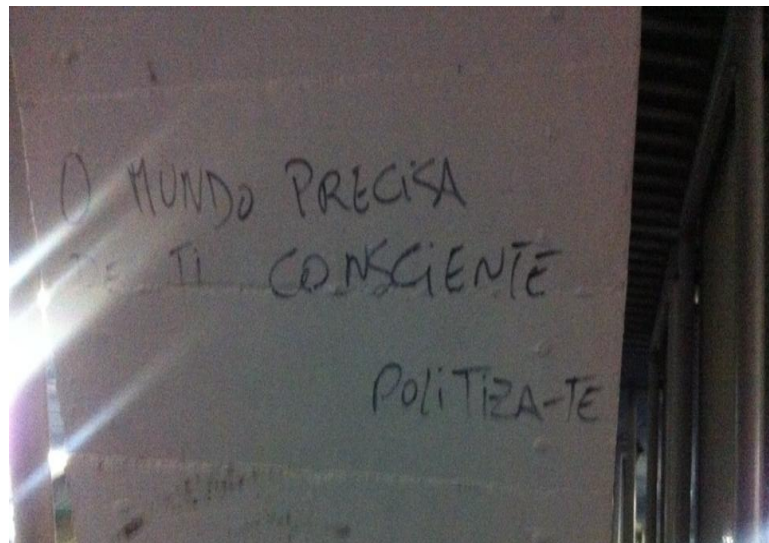 O MUNDO PRECISA
DE TI CONSCIENTE
POLITIZA-TE